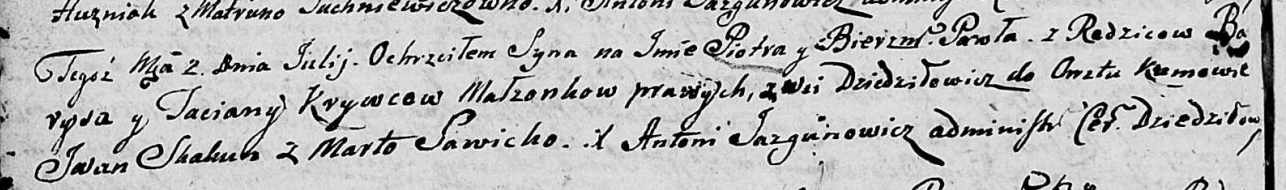 Huzniak z Matruno Juchniewiczowno. X. Antoni Jazgunowicz
Tegoż Mca 2. Dnia Julij. Ochrzciłem Syna na Imie Piotra y Bierzm. Pawła. z Rodzicow Ba
rysa y Taciany Krywcow Małzonkow prawych, z wsi Dziedziłowicz do Chrztu Kumowie
Jwan Skakun z Marto Sawicko. X Antoni Jazgunowicz administr Cer. Dziedziłow